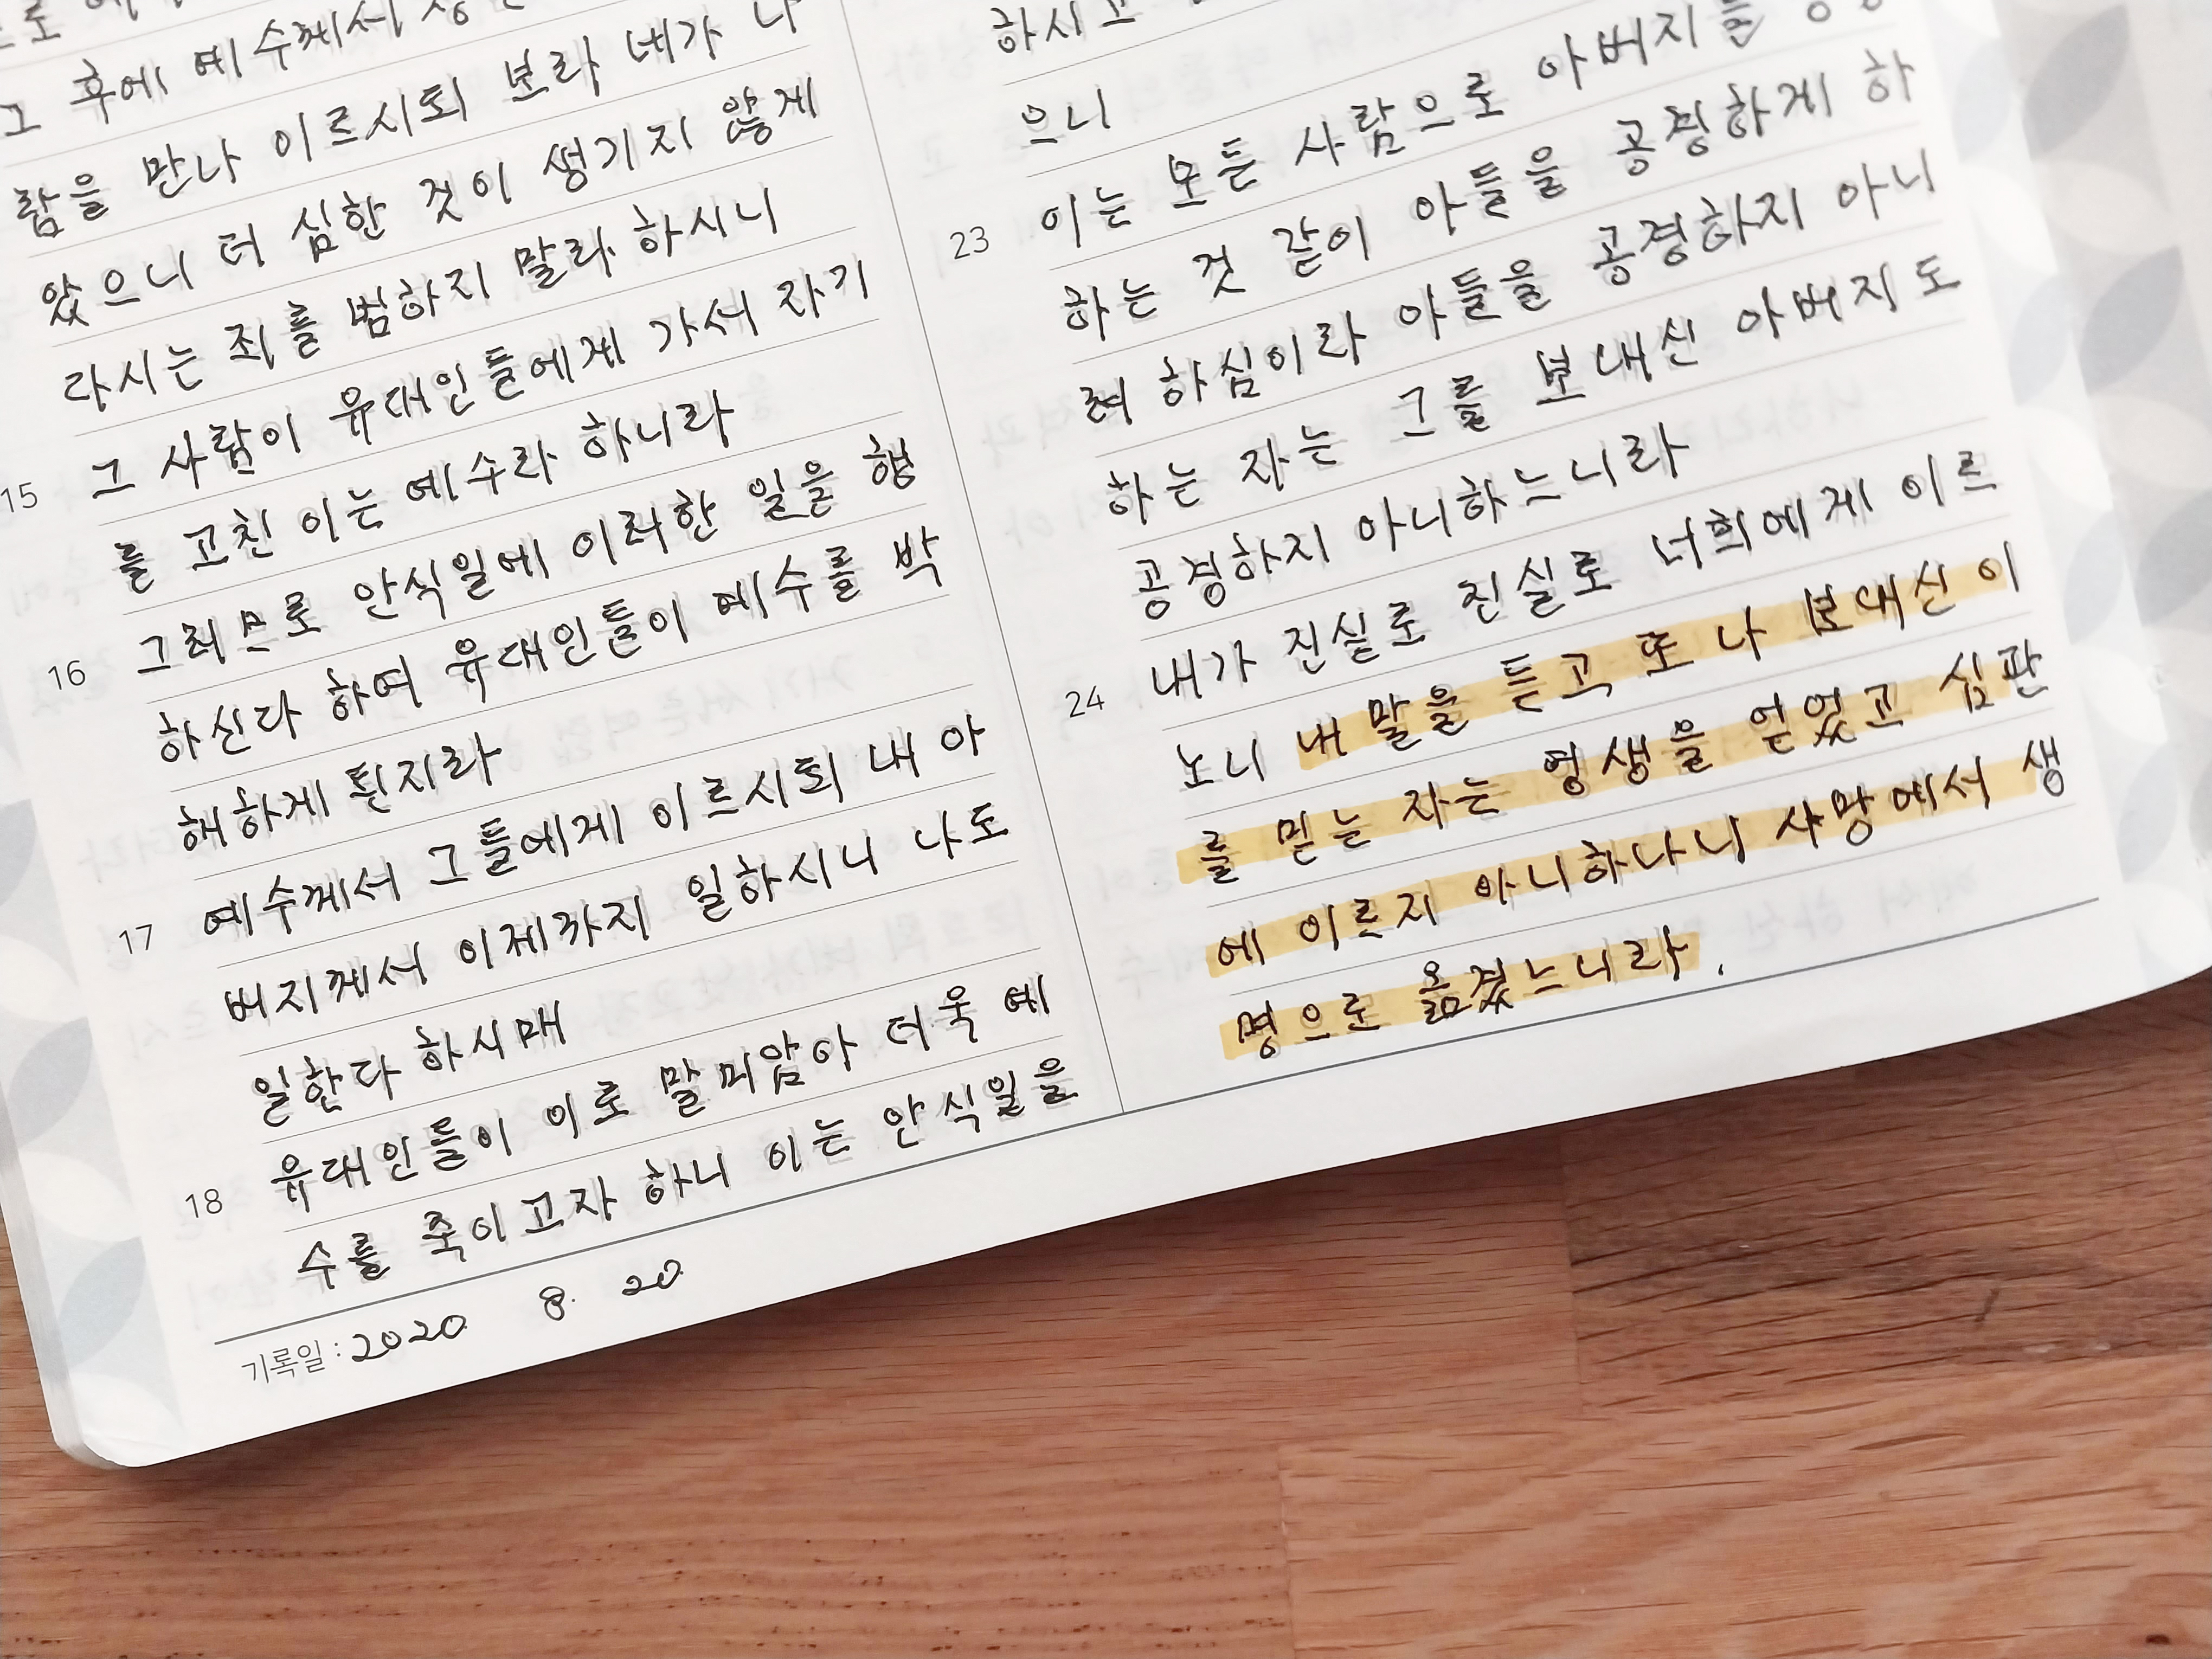 그 후에 예수께서
람을 만나 이르시되 보라 네가 나
았으니 더 심한 것이 생기지 않게
라시는 죄를 범하지 말라 하시니
15 그 사람이 유대인들에게 가서 자기
를 고친 이는 예수라 하니라
16 그러므로 안식일에 이러한 일을 행
하신다 하여 유대인들이 예수를 박
해하게 된지라
17 예수께서 그들에게 이르시되 내 아
버지께서 이제까지 일하시니 나도
일한다 하시매
18 유대인들이 이로 말미암아 더욱 예
수를 죽이고자 하니 이는 안식일을
기록일 : 2020. 8. 20.
하시고
으니
23 이는 모든 사람으로 아버지를
하는 것 같이 아들을 공경하게 하
려 하심이라 아들을 공경하지 아니
하는 자는 그를 보내신 아버지도
공경하지 아니하느니라
24 내가 진실로 진실로 너희에게 이르
노니 내 말을 듣고 또 나 보내신 이
를 믿는 자는 영생을 얻었고 심판
에 이르지 아니하나니 사망에서 생
명으로 옮겼느니라.